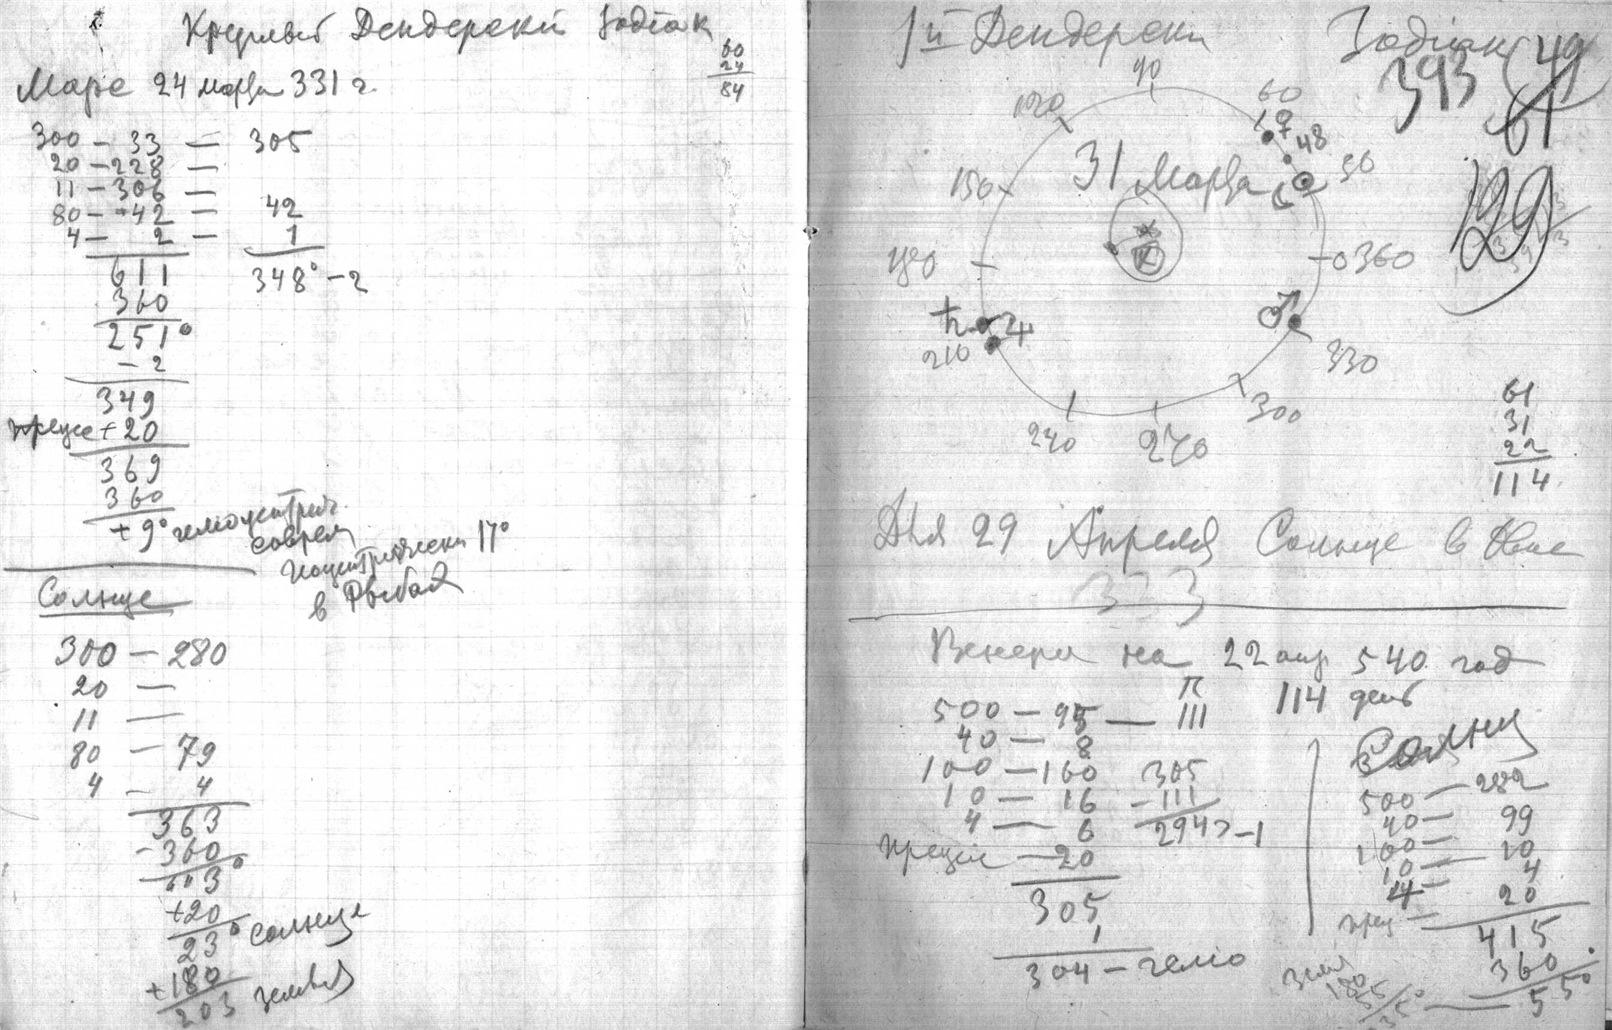 Круглый Дендерский Зодіак
60
24
84
Марс 24 марта 331 г.
300 – 33 — 305
20 – 228 —
11 – 306 —
80 – +42 — 42
4 – 2 — 1
611 348° – 2
360
251°
– 2
349
+ 20
369
360
+ 9° гелиоцентрич.
соврем
геоцентрически 17°
в Рыбах
Солнце
300 – 280
20 —
11 —
80 – 79
4 – 4
363
– 360
3°
+20
23° солнце
+180
203 земля
Дендерски Зодіак
393
49
61
199
90
120
60
48
30
150
31 Марта
180
0 360
♂
♄ ♃
210
330
300
240
270
61
31
22
114
Для 29 Апреля Солнце в Овне
333
Венера на 22 апр 540 год
П 114 день
500 – 95 — 111
40 – 8
100 – 160 305
10 – 16 – 111
4 — 6 294 > – 1
прецес – 20
305
1
304 – гелио
Солнц
500 – 282
40 – 99
100 – 10
10 – 4
4 – 20
прец –
415
360
55°
Земл
180